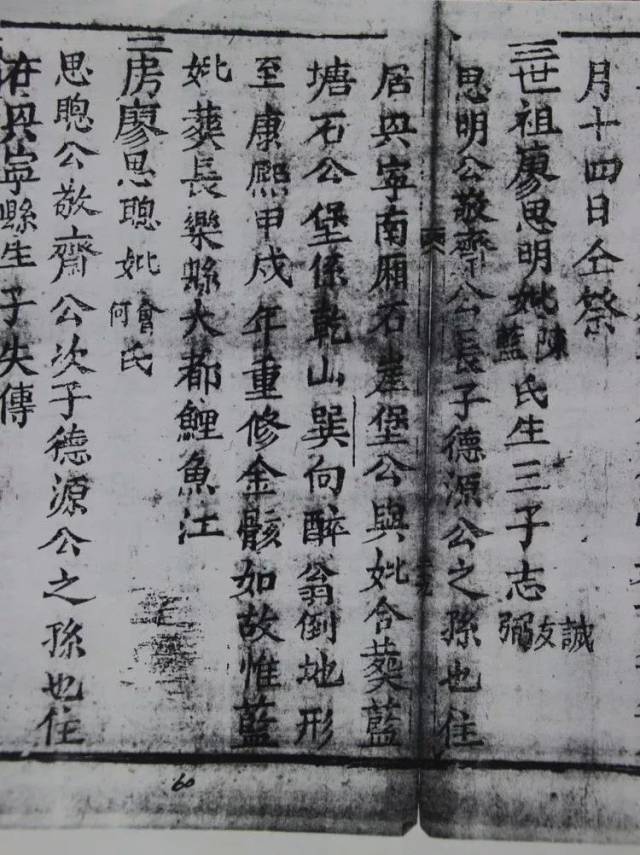 月十四日仝祭
三世祖廖思明妣陳藍氏生三子志誠友弼
思明公敬齋公長子德源公之孫也住
居興寧南廂石崖堡公與妣合葬藍
塘石公堡係乾山巽向醉翁倒地形
至康熙甲戌年重修金骸如故惟藍
妣葬長樂縣大都鯉魚江
三房廖思聰妣會何氏
思聰公敬齋公次子德源公之孫也住
在興寧縣生子失傳
60